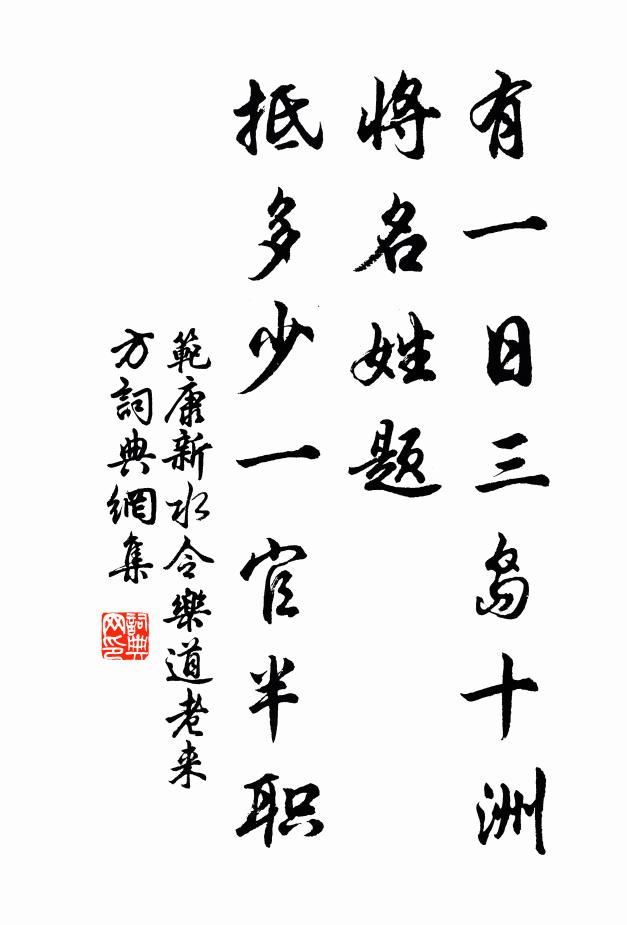 有一日三岛十洲
将名姓题
抵多少一官半职
範康新水令樂道老来
方詞典網集
詞典
网印